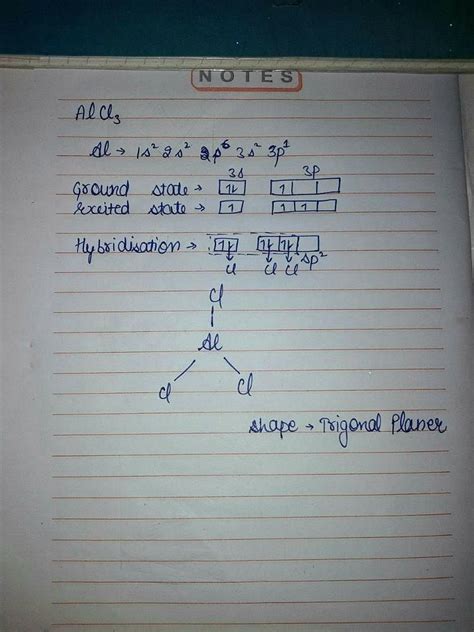 NOTES
AlCl₃
Al → 1s² 2s² 2p⁶ 3s² 3p¹
3s 3p
Ground state → 1⇂ 1
Excited state → 1 1 1 1
Hybridisation → 1⇂ 1⇂ 1⇂ sp²
Cl Cl Cl
Cl
Al
Cl Cl
shape → Trigonal Planer